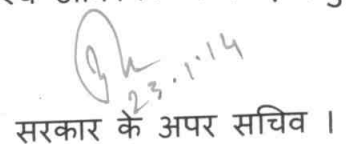 23.1.14
सरकार के अपर सचिव ।